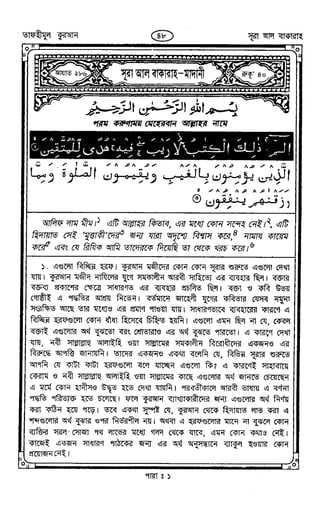 তাফহীমুল কুরআন ৪৮ সূরা আল বাকারাহ
আয়াত ২৮৬ সূরা আল বাকারাহ-মাদানী রুকূ' ৪০
بِسْمِ اللّٰهِ الرَّحْمٰنِ الرَّحِيْمِ
পরম করুণাময় মেহেরবান আল্লাহর নামে
الٓمّٓ ذٰلِكَ الْكِتٰبُ لَا رَيْبَ فِيْهِ هُدًى لِّلْمُتَّقِيْنَ
الَّذِيْنَ يُؤْمِنُوْنَ بِالْغَيْبِ وَيُقِيْمُوْنَ الصَّلٰوةَ وَمِمَّا
رَزَقْنٰهُمْ يُنْفِقُوْنَ
আলিফ লাম মীম।১ এটি আল্লাহর কিতাব, এর মধ্যে কোন সন্দেহ নেই।২ এটি
হিদায়াত সেই 'মুত্তাকী'দের৩ জন্য যারা অদৃশ্যে বিশ্বাস করে,৪ নামায কায়েম
করে৫ এবং যে রিযিক আমি তাদেরকে দিয়েছি তা থেকে খরচ করে।৬
১. এগুলো বিচ্ছিন্ন হরফ। কুরআন মজীদের কোন কোন সূরার শুরুতে এগুলো দেখা
যায়। কুরআন মজীদ নাযিলের যুগে সমকালীন আরবী সাহিত্যে এর ব্যবহার ছিল। বক্তার
বক্তব্য প্রকাশের ক্ষেত্রে সাধারণত এর ব্যবহার প্রচলিত ছিল। বক্তা ও কবি উভয়
গোষ্ঠীই এ পদ্ধতির আশ্রয় নিতেন। বর্তমানে জাহেলী যুগের কবিতার যেসব নমুনা
সংরক্ষিত আছে তার মধ্যেও এর প্রমাণ পাওয়া যায়। সাধারণভাবে ব্যবহারের কারণে এ
বিচ্ছিন্ন হরফগুলো কোন ধাঁধা হিসেবে চিহ্নিত হয়নি। এগুলো এমন ছিল না যে, কেবল
বক্তাই এগুলোর অর্থ বুঝতো বরং শ্রোতারাও এর অর্থ বুঝতে পারতো। এ কারণে দেখা
যায়, নবী সাল্লাল্লাহু আলাইহি ওয়া সাল্লামের সমকালীন বিরোধীদের একজনও এর
বিরুদ্ধে আপত্তি জানায়নি। তাদের একজনও একথা বলেনি যে, বিভিন্ন সূরার শুরুতে
আপনি যে কাটা কাটা হরফগুলো বলে যাচ্ছেন এগুলো কি? এ কারণেই সাহাবায়ে
কেরাম ও নবী সাল্লাল্লাহু আলাইহি ওয়া সাল্লামের কাছে এগুলোর অর্থ জানতে চেয়েছেন
এ মর্মে কোন হাদীসও উদ্ধৃত হতে দেখা যায়নি। পরবর্তীকালে আরবী ভাষায় এ বর্ণনা
পদ্ধতি পরিত্যক্ত হতে চলেছে। ফলে কুরআন ব্যাখ্যাকারীদের জন্য এগুলোর অর্থ নির্ণয়
করা কঠিন হয়ে পড়ে। তবে একথা সুস্পষ্ট যে, কুরআন থেকে হিদায়াত লাভ করা এ
শব্দগুলোর অর্থ বুঝার ওপর নির্ভরশীল নয়। অথবা এ হরফগুলোর মানে না বুঝলে কোন
ব্যক্তির সরল সোজা পথ লাভের মধ্যে গলদ থেকে যাবে, এমন কোন কথাও নেই।
কাজেই একজন সাধারণ পাঠকের জন্য এর অর্থ অনুসন্ধানে ব্যাকুল হওয়ার কোন
প্রয়োজন নেই।
পারা : ১